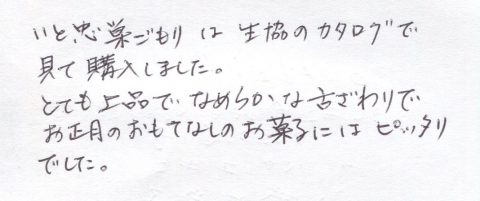 いと忠 巣ごもり は 生協のカタログで
見て 購入しました。
とても上品で なめらかな舌ざわりで
お正月のおもてなしのお菓子には ピッタリ
でした。